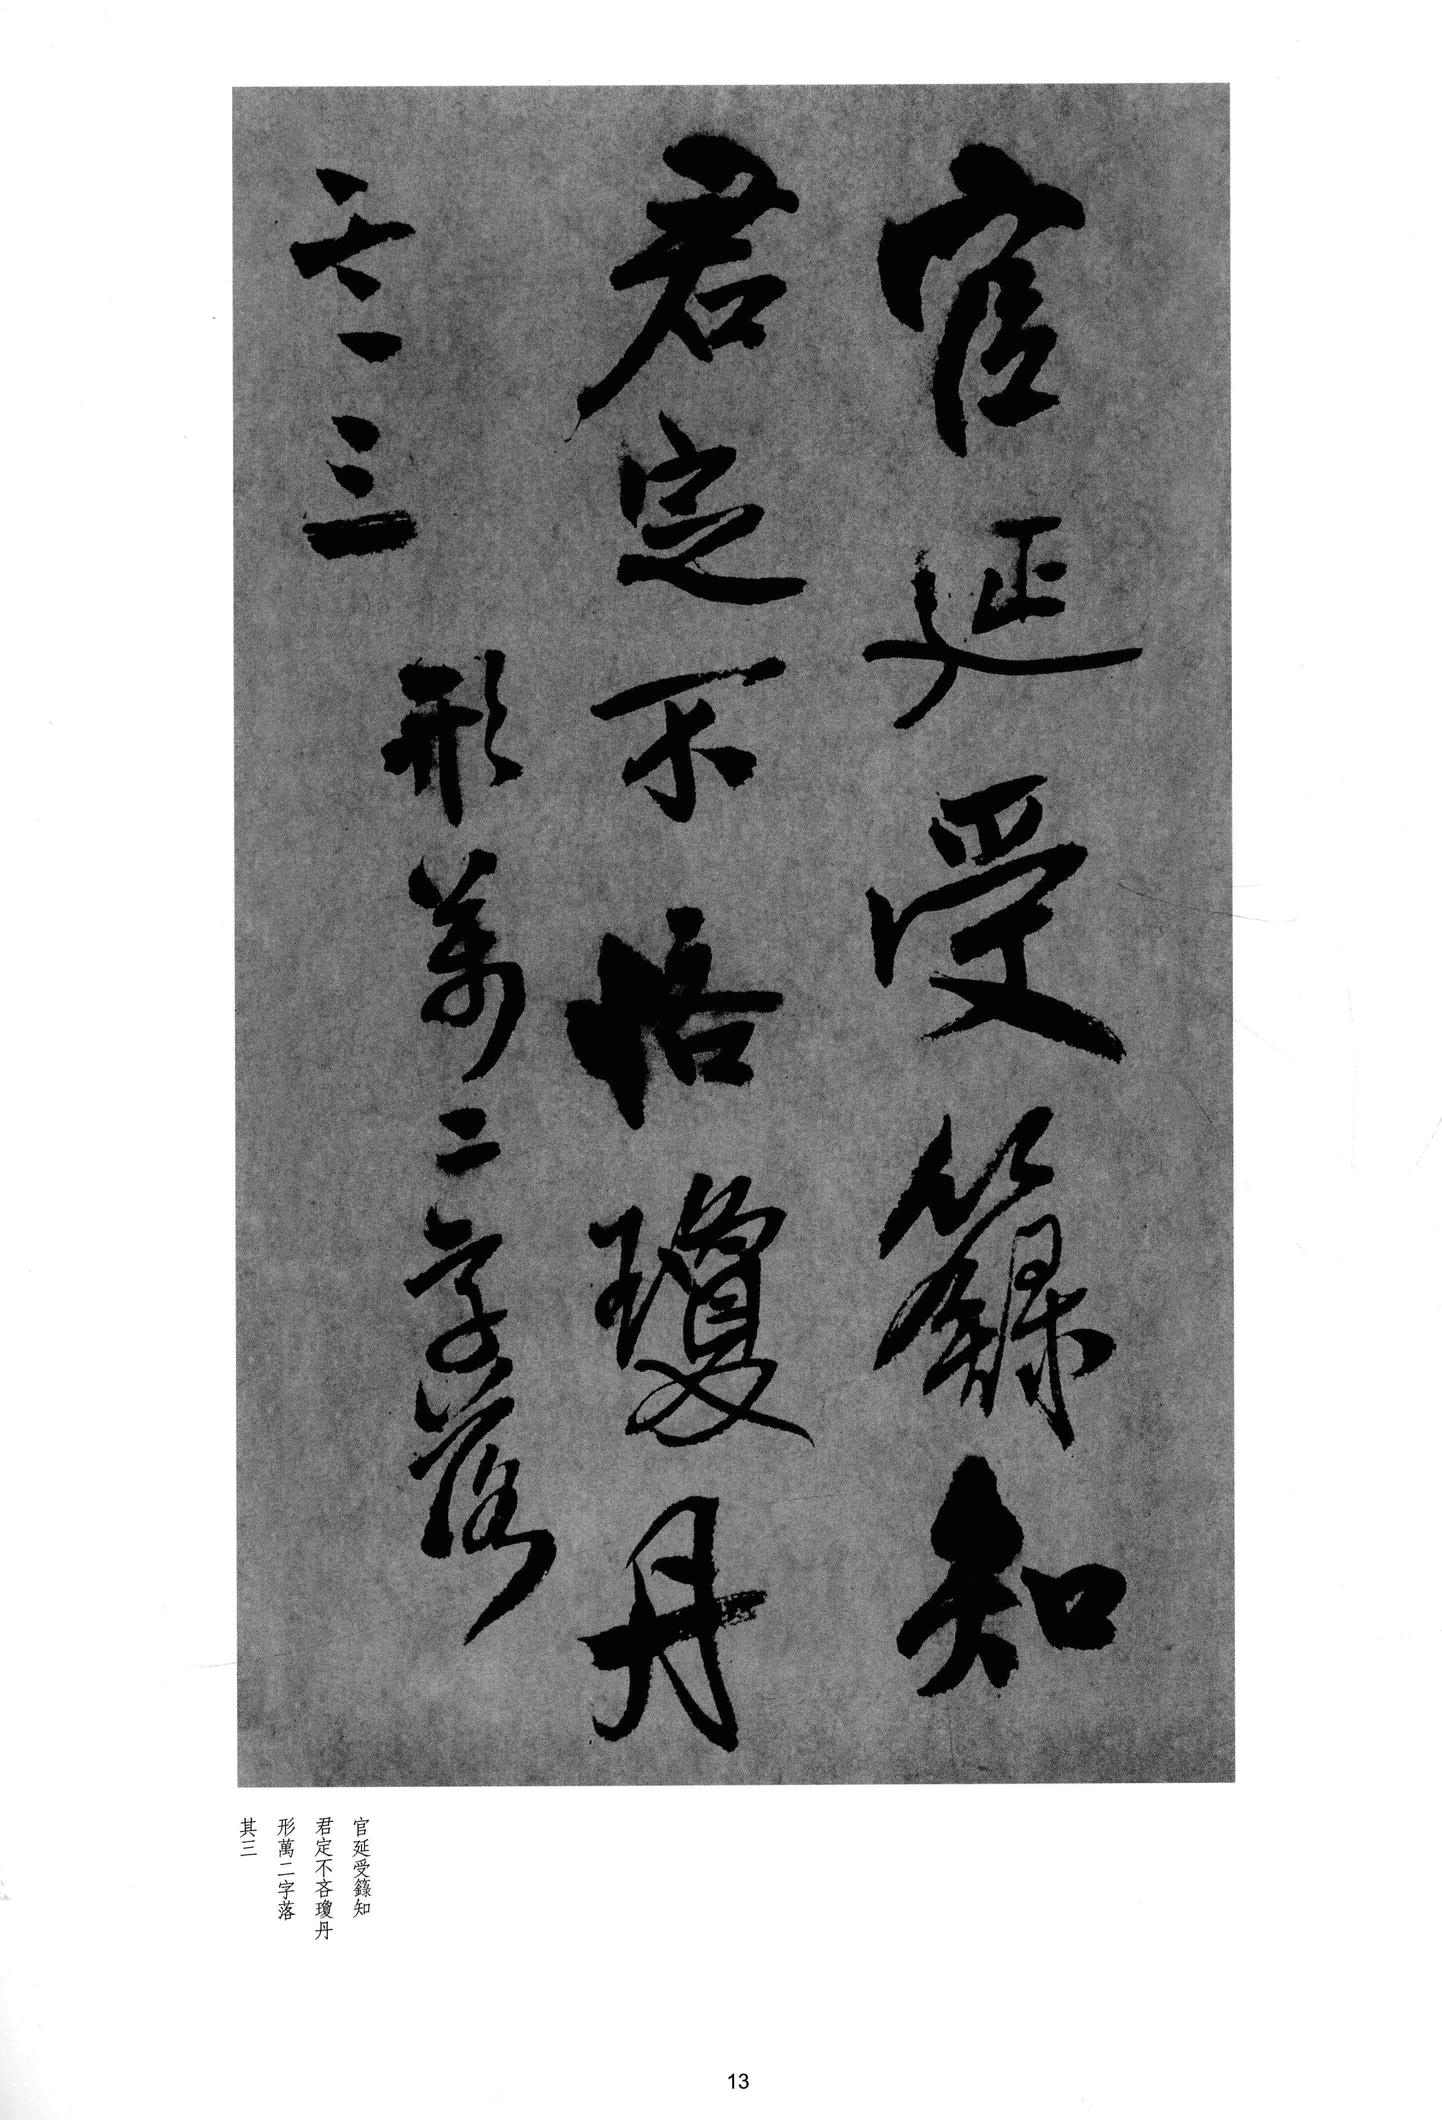 官延受籙知
君定不悋瓊丹
形萬二字落
其一三
官延受籙知
君定不吝瓊丹
形萬二字落
其三
13